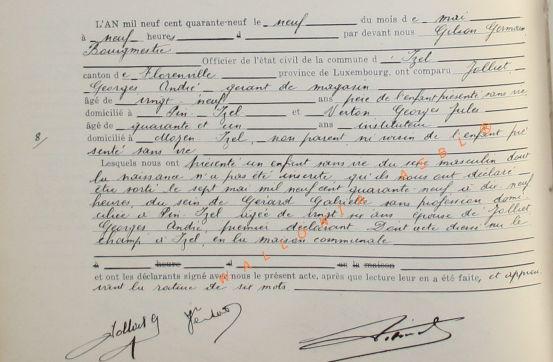 L'AN mil neuf cent quarante-neuf le neuf du mois de mai
à neuf heures à par devant nous Gilson Germain
Bourgmestre
Officier de l'état civil de la commune d' Izel
canton de Florenville province de Luxembourg, ont comparu Jolliet
Georges André, gérant de magasin
âgé de vingt neuf ans père de l'enfant présenté sans vie
domicilié à Pin Izel et Verton Georges Jules
âgé de quarante et un ans instituteur
8/ domicilié à Moyen Izel, non parent ni voisin de l'enfant pré
senté sans vie
Lesquels nous ont présenté un enfant sans vie du sexe masculin dont
la naissance n'a pas été inscrite qu'ils nous ont déclaré
être sorti le sept mai mil neuf cent quarante neuf à dix neuf
heures, du sein de Gérard Gabrielle sans profession domi
ciliée à Pin Izel âgée de vingt six ans épouse de Jolliet
Georges André, premier déclarant Dont acte dressé sur le
champ à Izel, en la maison communale
à heure d en la maison
et ont les déclarants signé avec nous le présent acte, après que lecture leur en a été faite, et approu
vant la rature de six mots
WALLONIA ASBL